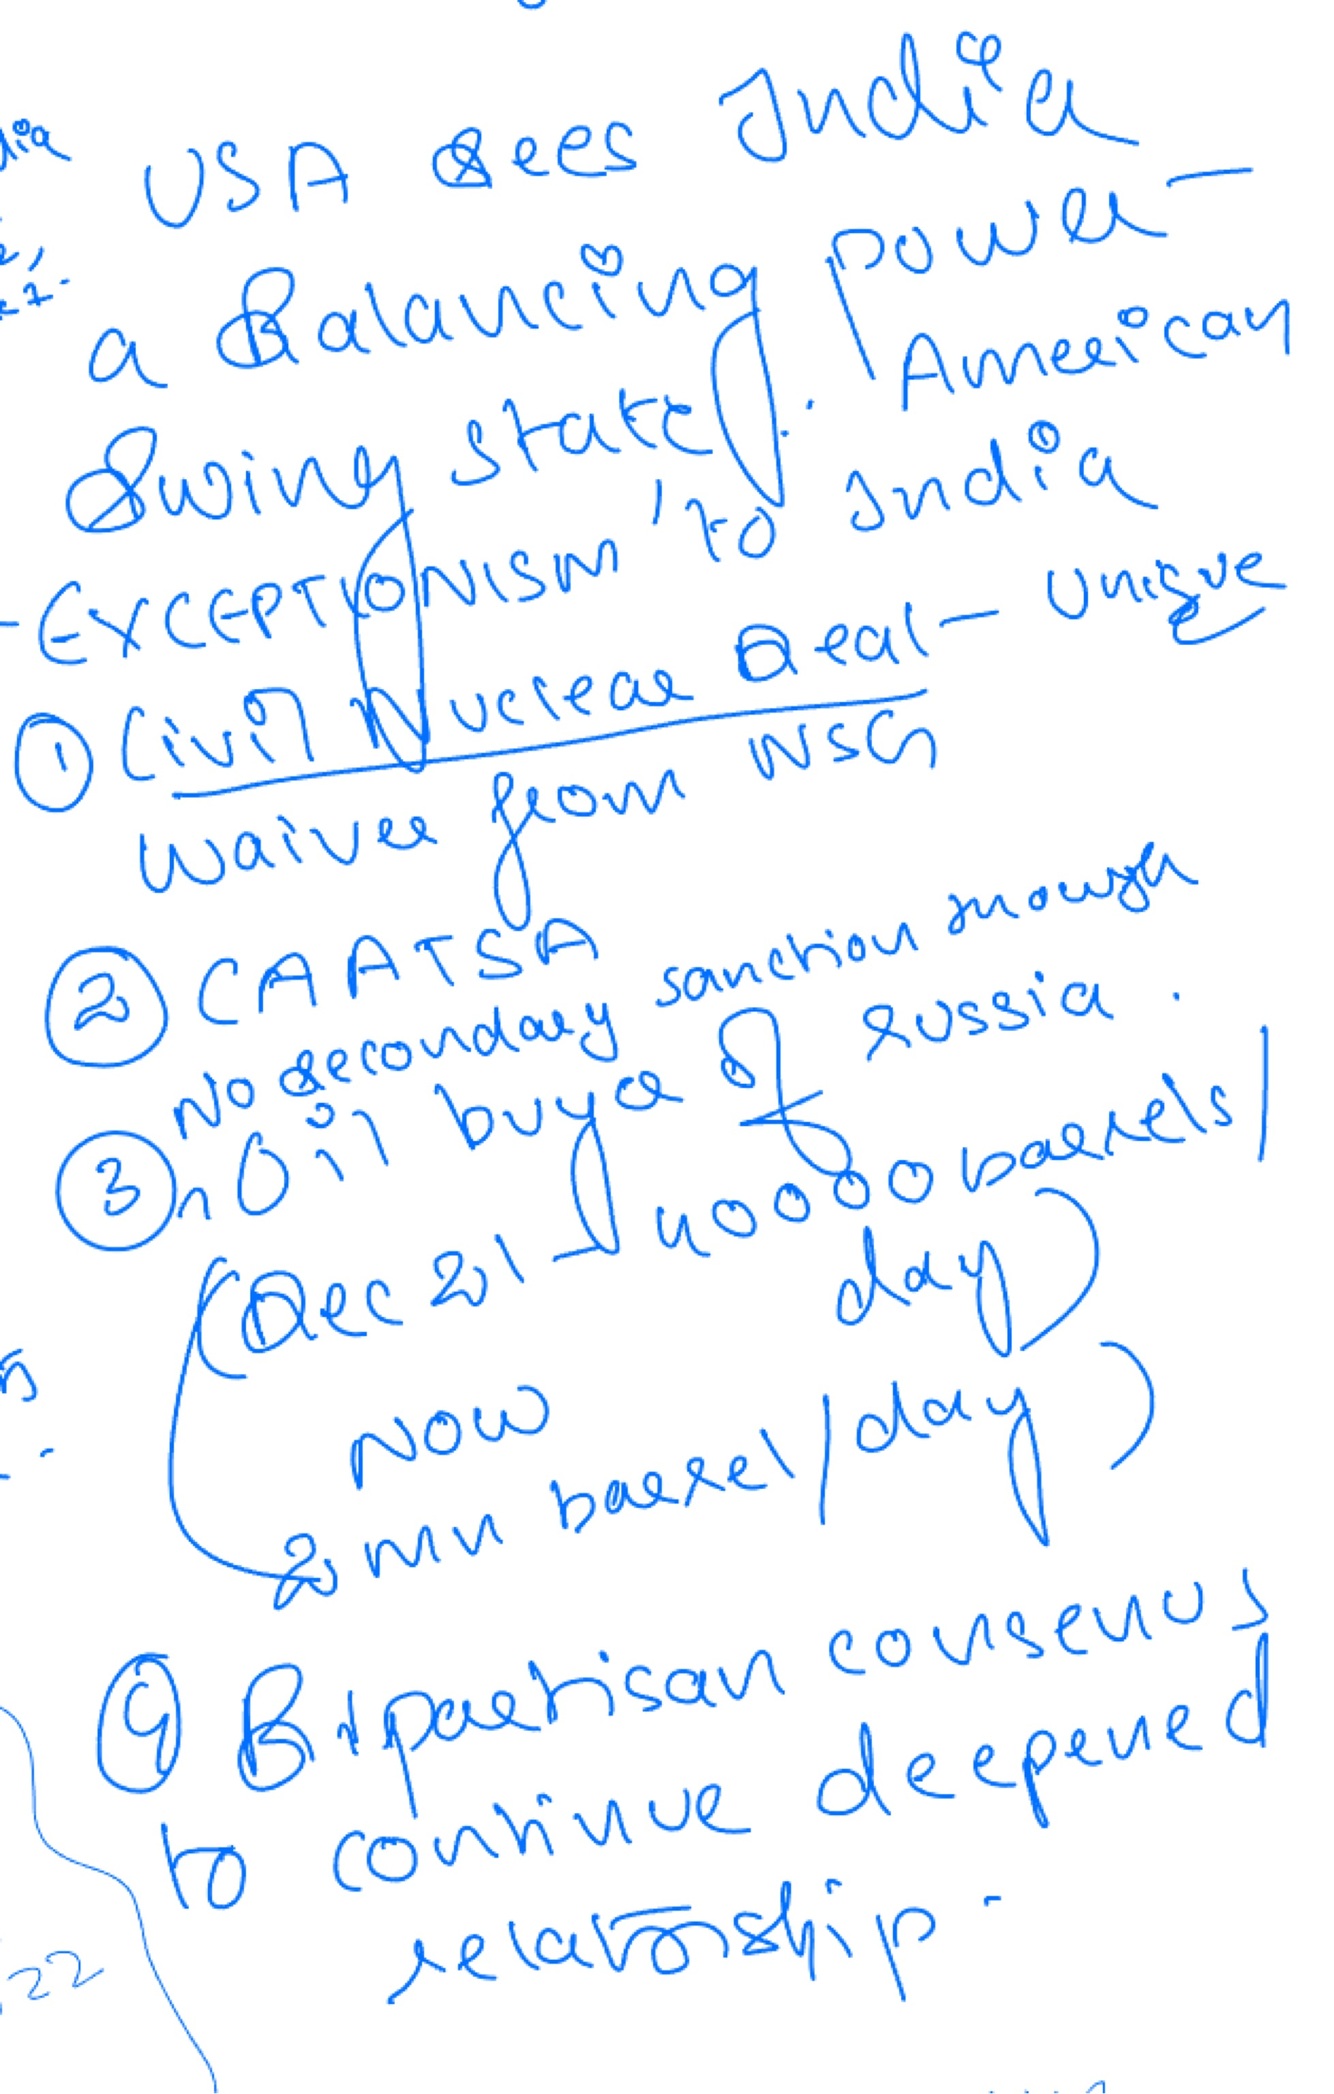 USA sees India
a Balancing power –
Swing state. American
- EXCEPTIONISM' to India
① Civil Nuclear Deal – Unique
waiver from NSG
② CAATSA
No secondary sanction though
③ n Oil buyer of Russia.
(Dec 21 – 40000 barrels/
day)
Now
2 mn barrel/day)
④ Bipartisan consenus
to continue deepened
relationship.
22